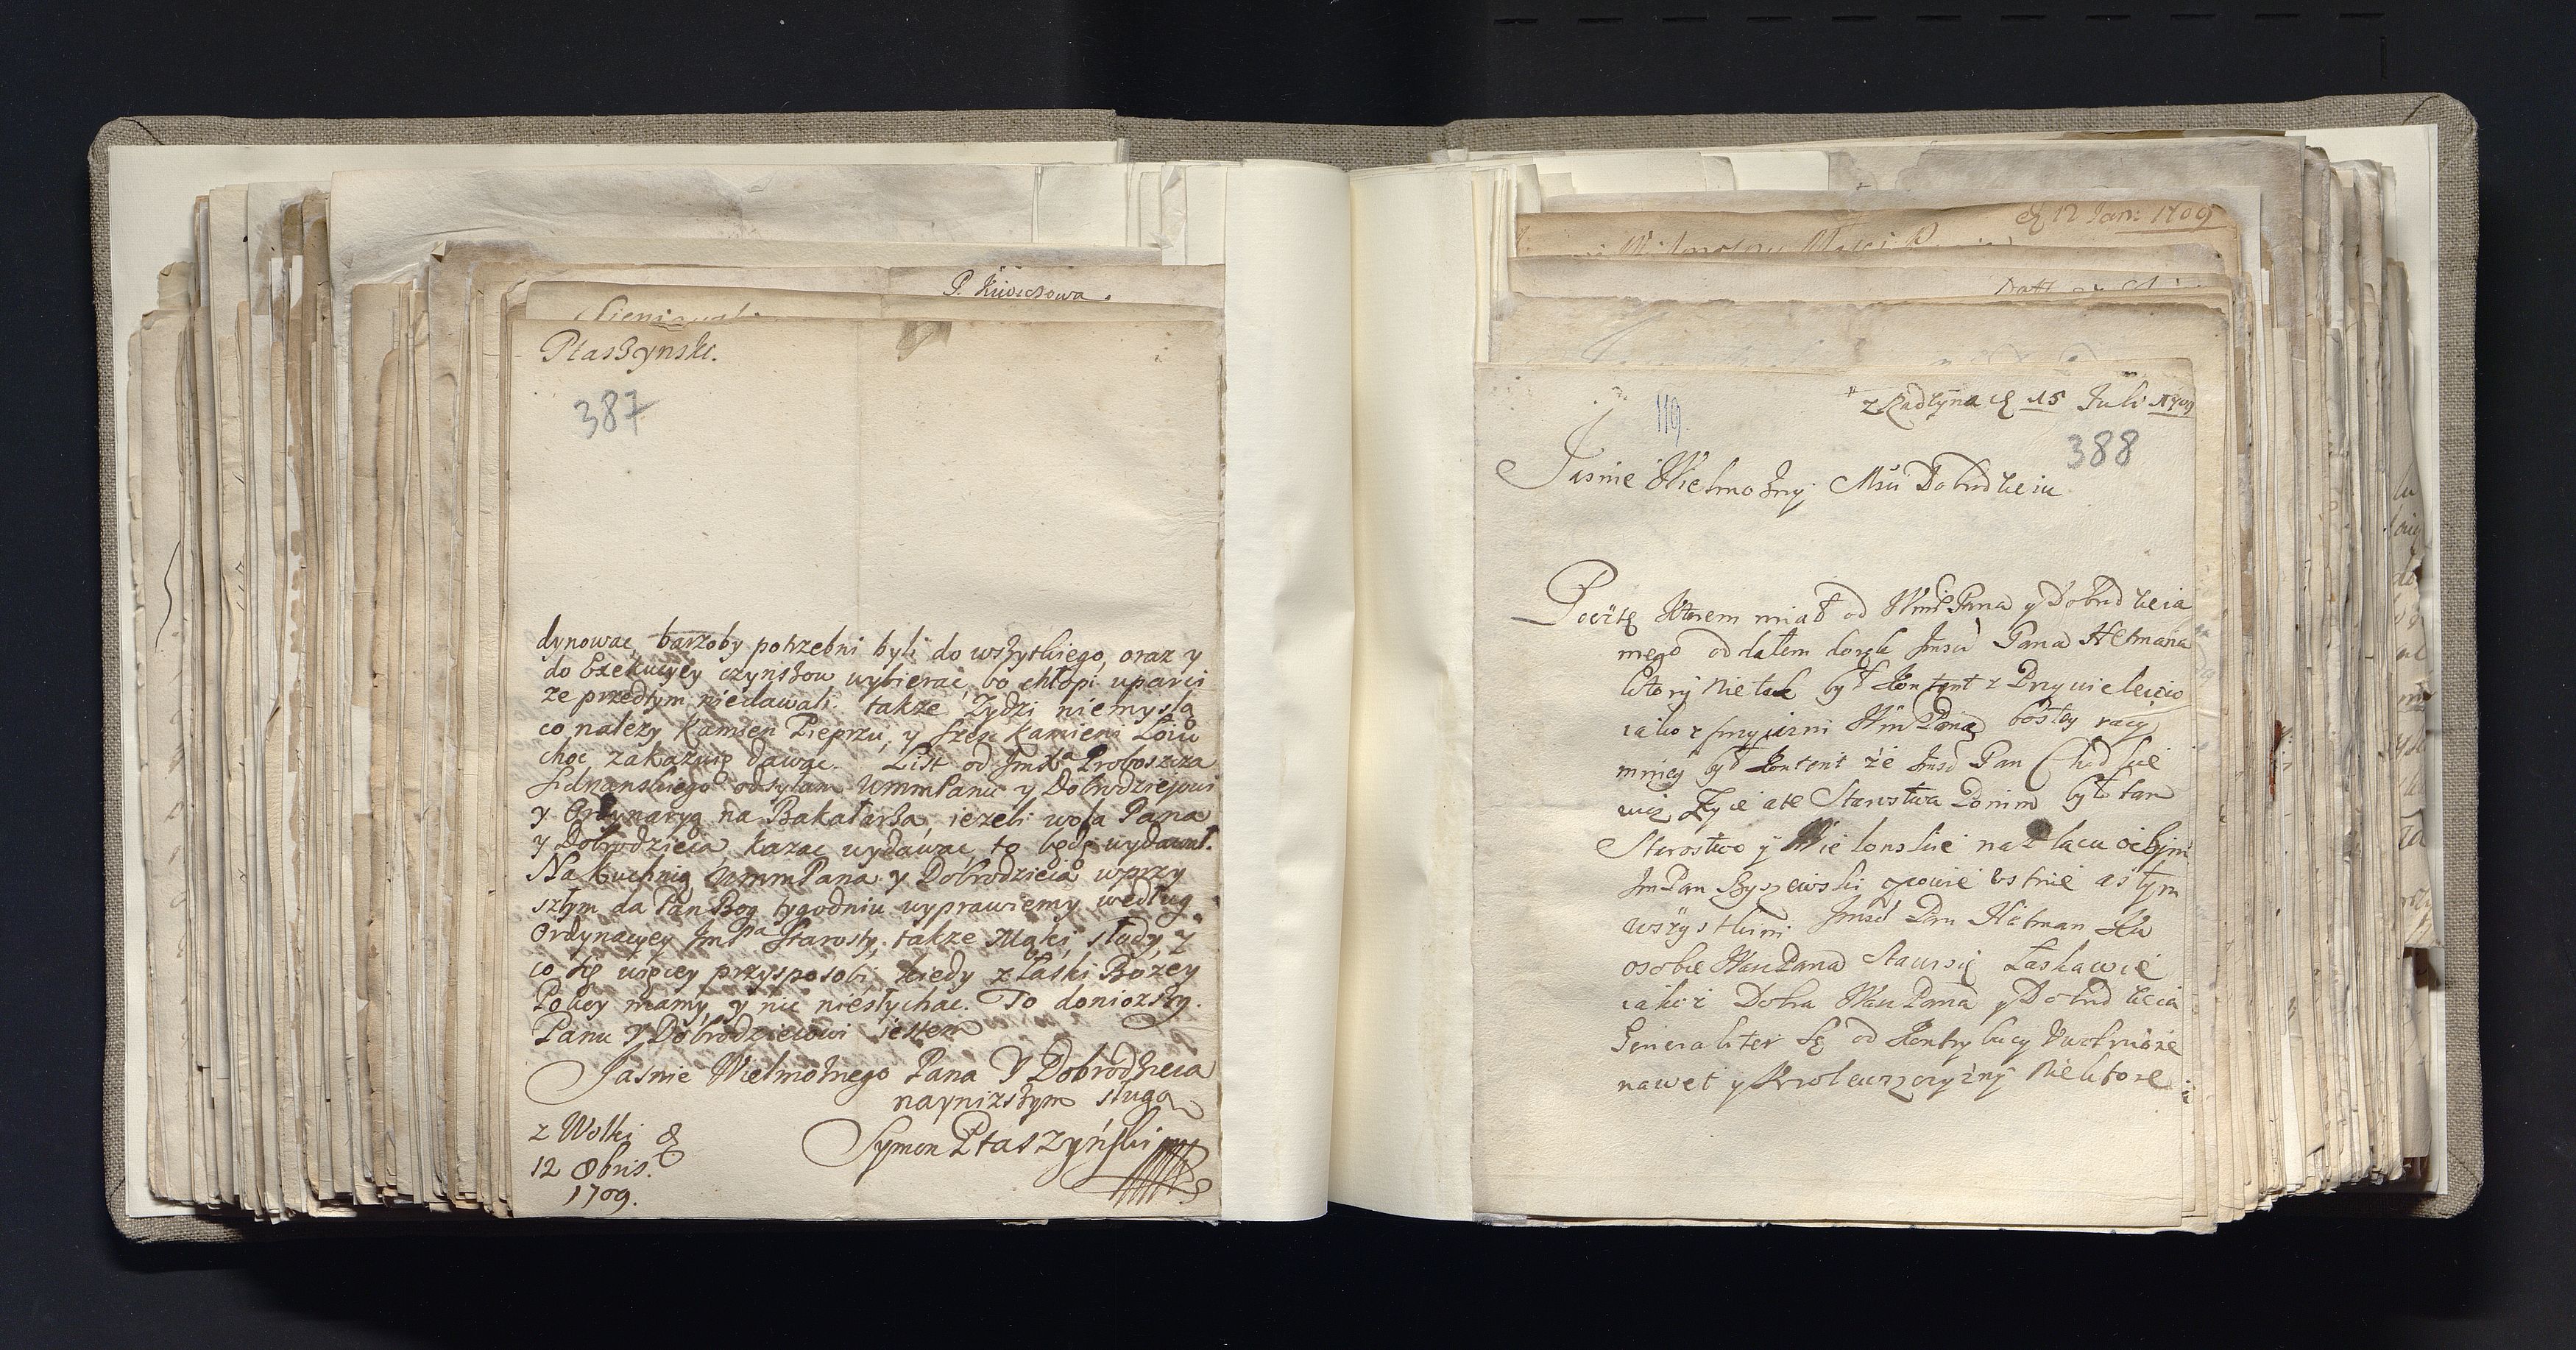 P. Kuoczowa.
Ptaszynski.
387
dynowac, barzoby potrzebni byli do wszytkiego, oraz y
do Exekucyey czynszow wybierac, bo chłopi uparci
ze przedtym niedawali. takze Zydzi niemyslą
co nalezy Kamien Pieprzu, y szesc Kamieni Łoiu
choc zakazuię dawac. List od Jmsci Proboszcza
odsyłam WmmPanu y Dobrodziejowi
y Ordynaryą na Bakałarza, iezeli wola Pana
y Dobrodzieia, kazac wydawac, to będę wydawał.
Na Kuchnią WmmPana y Dobrodzieia wprzy
szłym da Pan Bog tygodniu wyprawiemy według
Ordynacyey Jmpa Starosty, takze Mąki, słody, y
co się więcey przysposobi, kiedy z łaski Bozey
Pokoy mamy, y nic niesłychac. To doniozszy.
Panu y Dobrodzieiowi iestem
Jasnie Wielmoznego Pana Y Dobrodzieia
naynizszym sługą
Symon Ptaszyński
z Wolki d
12 8bris.
1709.
d 12 Jan: 1709
z Radzyna d 15 Juli 1709
119.
388
Jasnie Wielmozny Msci Dobrodzieiu
Pocztę Ktorem miał od WmscPana y Dobrodzieia
mego oddałem do rąk Jmsci Pana Hetmana
Ktory nie tak był Kontent z Przywileiow
iako z przyiazni WmPana bo z tey racy
mniey był Kontent że Jmsc Pan Chod kie
wicz Zyie ale Starostwa był tam
Starostwo y Wielonskie na placu
JmPan Ryszewski opowie ustnie a s tym
wszystkim Jmsc Pan Hetman Ku
osobie WmPana stawsię Łaskawie
iakoz Dobra WmPana y Dobrodzieia
Generaliter są od Kontrybucy Uwolnione
nawet y Krolewszczyzny Niektore